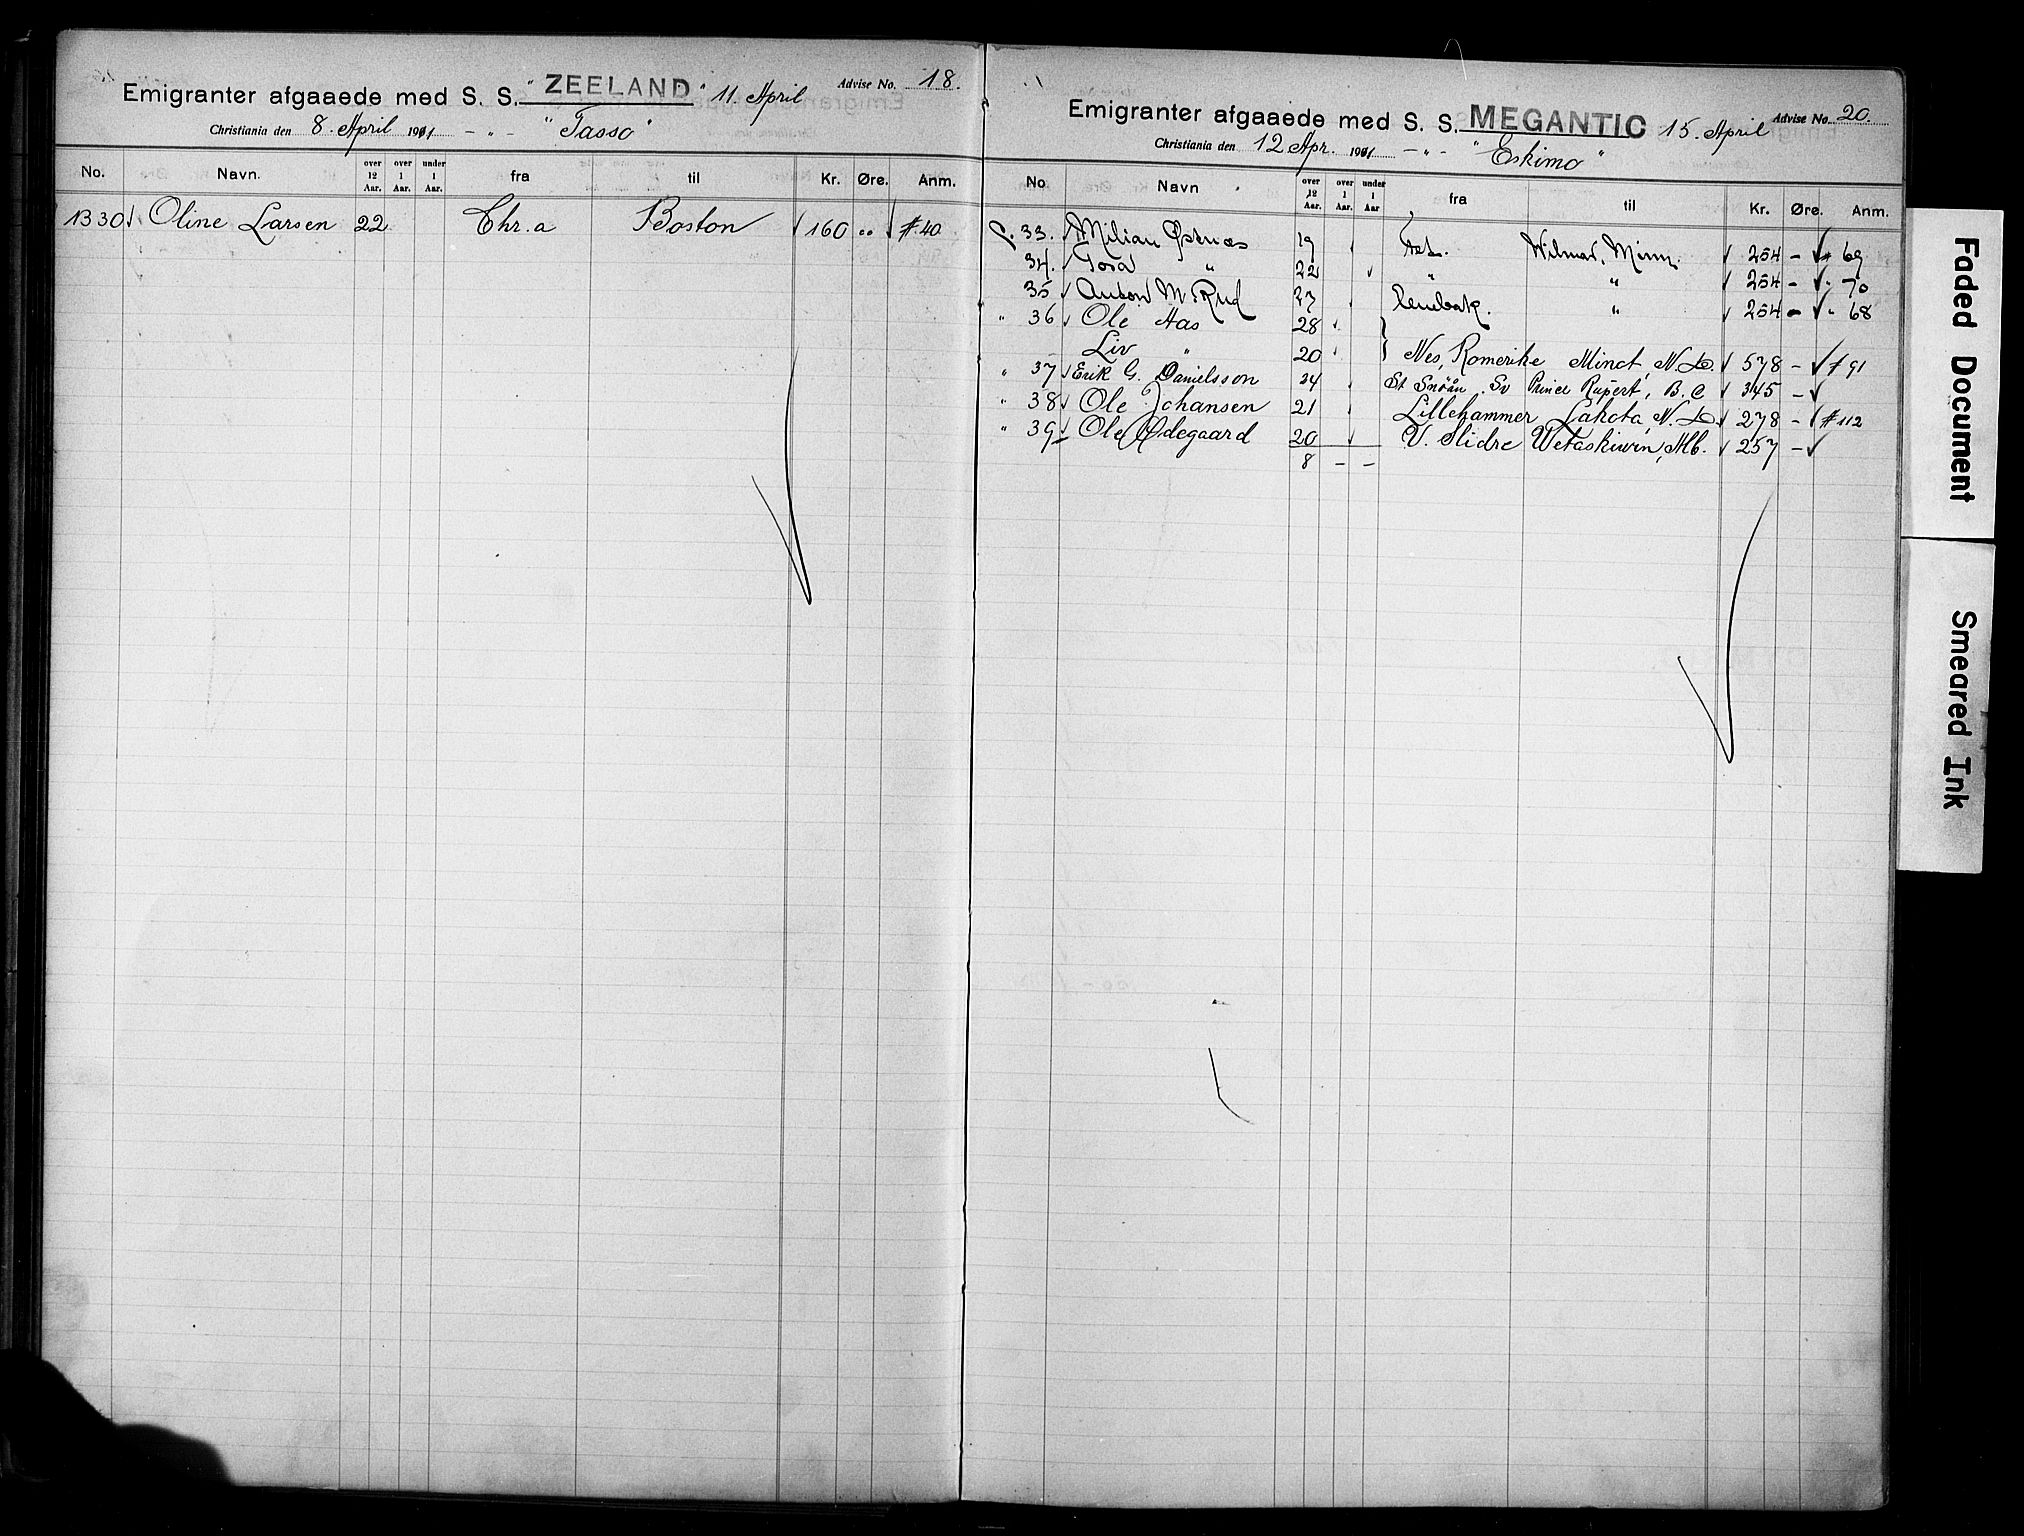 Emigranter afgaaede med S. S. " ZEELAND " 11 April Advise No. 18.
Christiania den 8. April 1911 - " - "Tasso"
No. Navn. over 12 Aar. over 1 Aar. under 1 Aar. fra til Kr. Øre. Anm.
1330 Oline Larsen 22 Chr.a Boston 160 " # 40
Emigranter afgaaede med S. S. MEGANTIC 15. April Advise No. 20.
Christiania den 12 Apr. 1911 - " - "Eskimo"
No. Navn over 12 Aar. over 1 Aar. under 1 Aar fra til Kr. Øre. Anm.
33. Milian Østnes 19 Wilmar, Minn. 254 - # 69
34. Tora " 22 " " 254 - " 70
35 Anton M. Rud 27 Enebak. " 254 - " 68
" 36 Ole Aas 28
Liv " 20 Nes, Romerike Minot, N.D. 578 - # 91
" 37 Erik G. Danielsson 24 St Snöån, Sv Prince Rupert, B.C 345 -
" 38 Ole Johansen 21 Lillehammer Lakota, N.D. 278 - # 112
" 39 Ole Ødegaard 20 V. Slidre Wetaskiwin, Alb. 257 -
8 - -
Faded Document
Smeared Ink